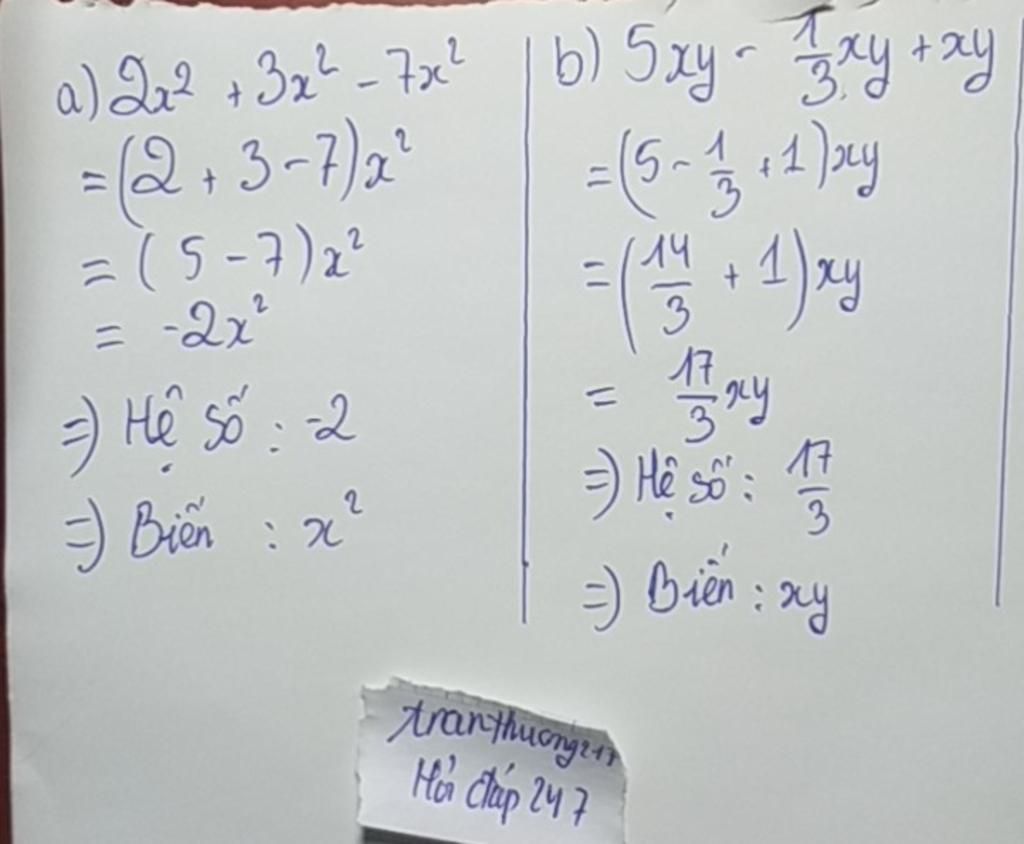 a) 2x² + 3x² - 7x²
= (2 + 3 - 7)x²
= (5 - 7)x²
= -2x²
=) Hệ số : -2
=) Biến : x²
b) 5xy - 1/3 xy + xy
= (5 - 1/3 + 1)xy
= (14/3 + 1)xy
= 17/3 xy
=) Hệ số : 17/3
=) Biến : xy
tranthuong217
Hỏi đáp 247